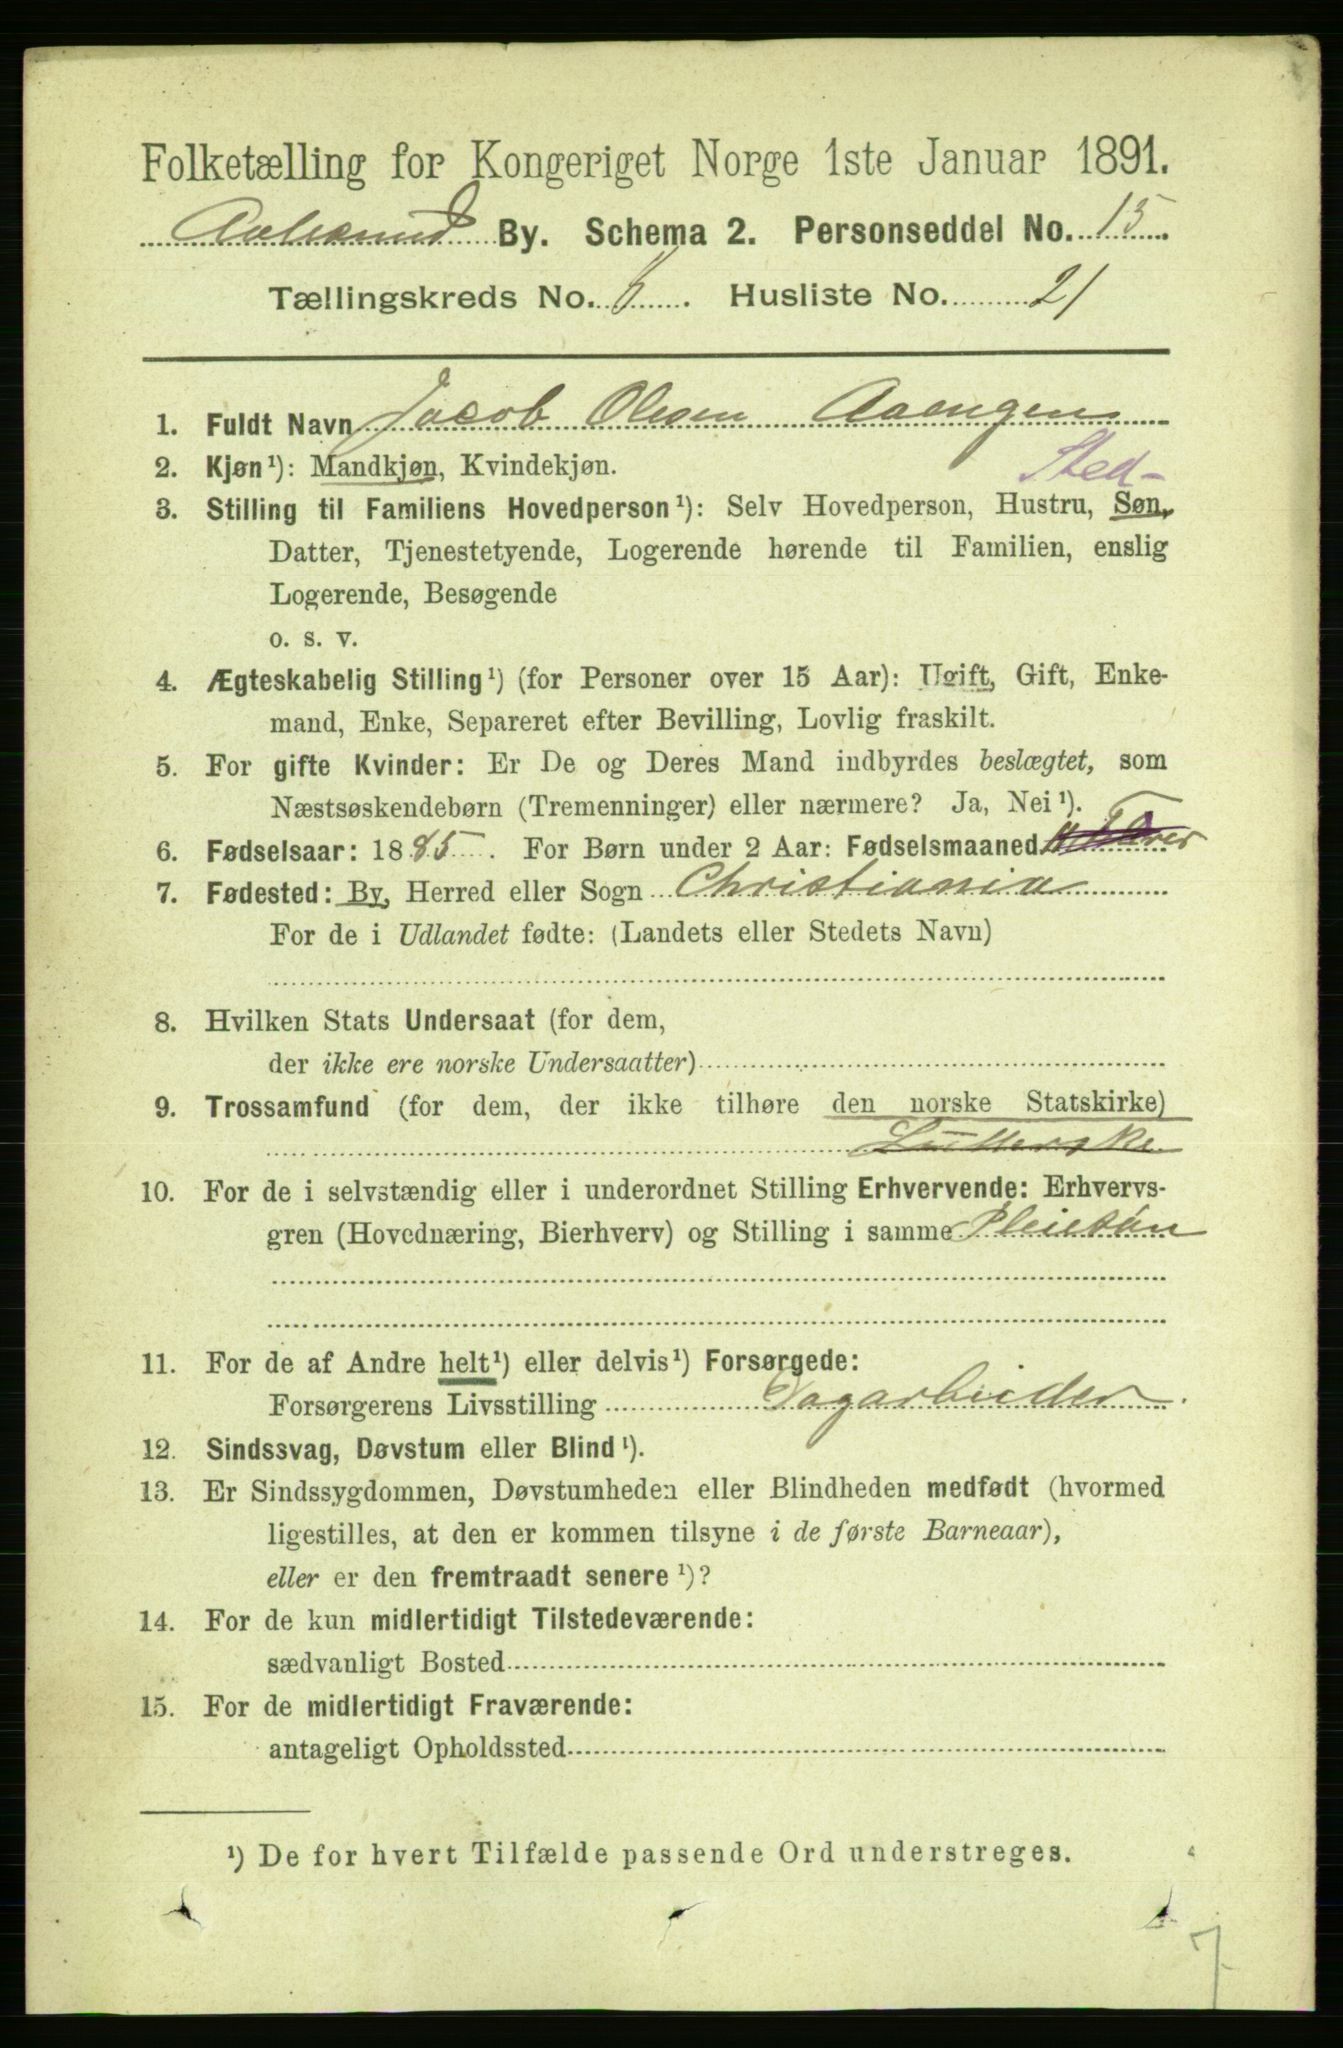 Folketælling for Kongeriget Norge 1ste Januar 1891.
Aalesund By. Schema 2. Personseddel No. 15.
Tællingskreds No. 8. Husliste No. 21
1. Fuldt Navn Jacob Olesen Aaengen
2. Kjøn¹): Mandkjøn, Kvindekjøn.
Sted-
3. Stilling til Familiens Hovedperson¹): Selv Hovedperson, Hustru, Søn,
Datter, Tjenestetyende, Logerende hørende til Familien, enslig
Logerende, Besøgende
o. s. v.
4. Ægteskabelig Stilling¹) (for Personer over 15 Aar): Ugift, Gift, Enke-
mand, Enke, Separeret efter Bevilling, Lovlig fraskilt.
5. For gifte Kvinder: Er De og Deres Mand indbyrdes beslægtet, som
Næstsøskendebørn (Tremenninger) eller nærmere? Ja, Nei¹).
6. Fødselsaar: 1885. For Børn under 2 Aar: Fødselsmaaned
7. Fødested: By, Herred eller Sogn Christiania
For de i Udlandet fødte: (Landets eller Stedets Navn)
8. Hvilken Stats Undersaat (for dem,
der ikke ere norske Undersaatter)
9. Trossamfund (for dem, der ikke tilhøre den norske Statskirke)
Lutherske
10. For de i selvstændig eller i underordnet Stilling Erhvervende: Erhvervs-
gren (Hovednæring, Bierhverv) og Stilling i samme Pleiesøn
11. For de af Andre helt¹) eller delvis¹) Forsørgede:
Forsørgerens Livsstilling Dagarbeider.
12. Sindssvag, Døvstum eller Blind¹).
13. Er Sindssygdommen, Døvstumheden eller Blindheden medfødt (hvormed
ligestilles, at den er kommen tilsyne i de første Barneaar),
eller er den fremtraadt senere¹)?
14. For de kun midlertidigt Tilstedeværende:
sædvanligt Bosted
15. For de midlertidigt Fraværende:
antageligt Opholdssted
¹) De for hvert Tilfælde passende Ord understreges.
7